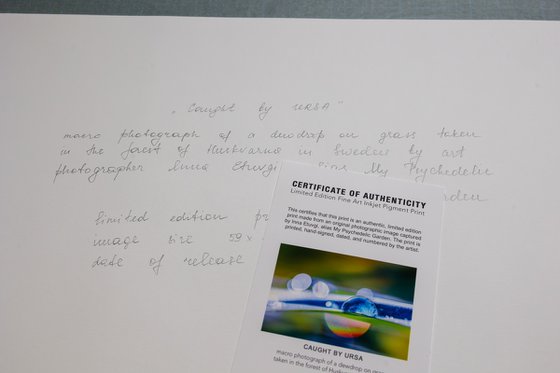 „Caught by URSA"
macro photograph of a dewdrop on grass taken
in the forest of Huskvarna in Sweden by art
photographer Inna Etuvgi, alias My Psychedelic
Garden
limited edition pr
image size 59 x
date of release
CERTIFICATE OF AUTHENTICITY
Limited Edition Fine Art Inkjet Pigment Print
This certifies that this print is an authentic, limited edition
print made from an original photographic image captured
by Inna Etuvgi, alias My Psychedelic Garden. The print is
printed, hand-signed, dated, and numbered by the artist.
CAUGHT BY URSA
macro photograph of a dewdrop on
taken in the forest of